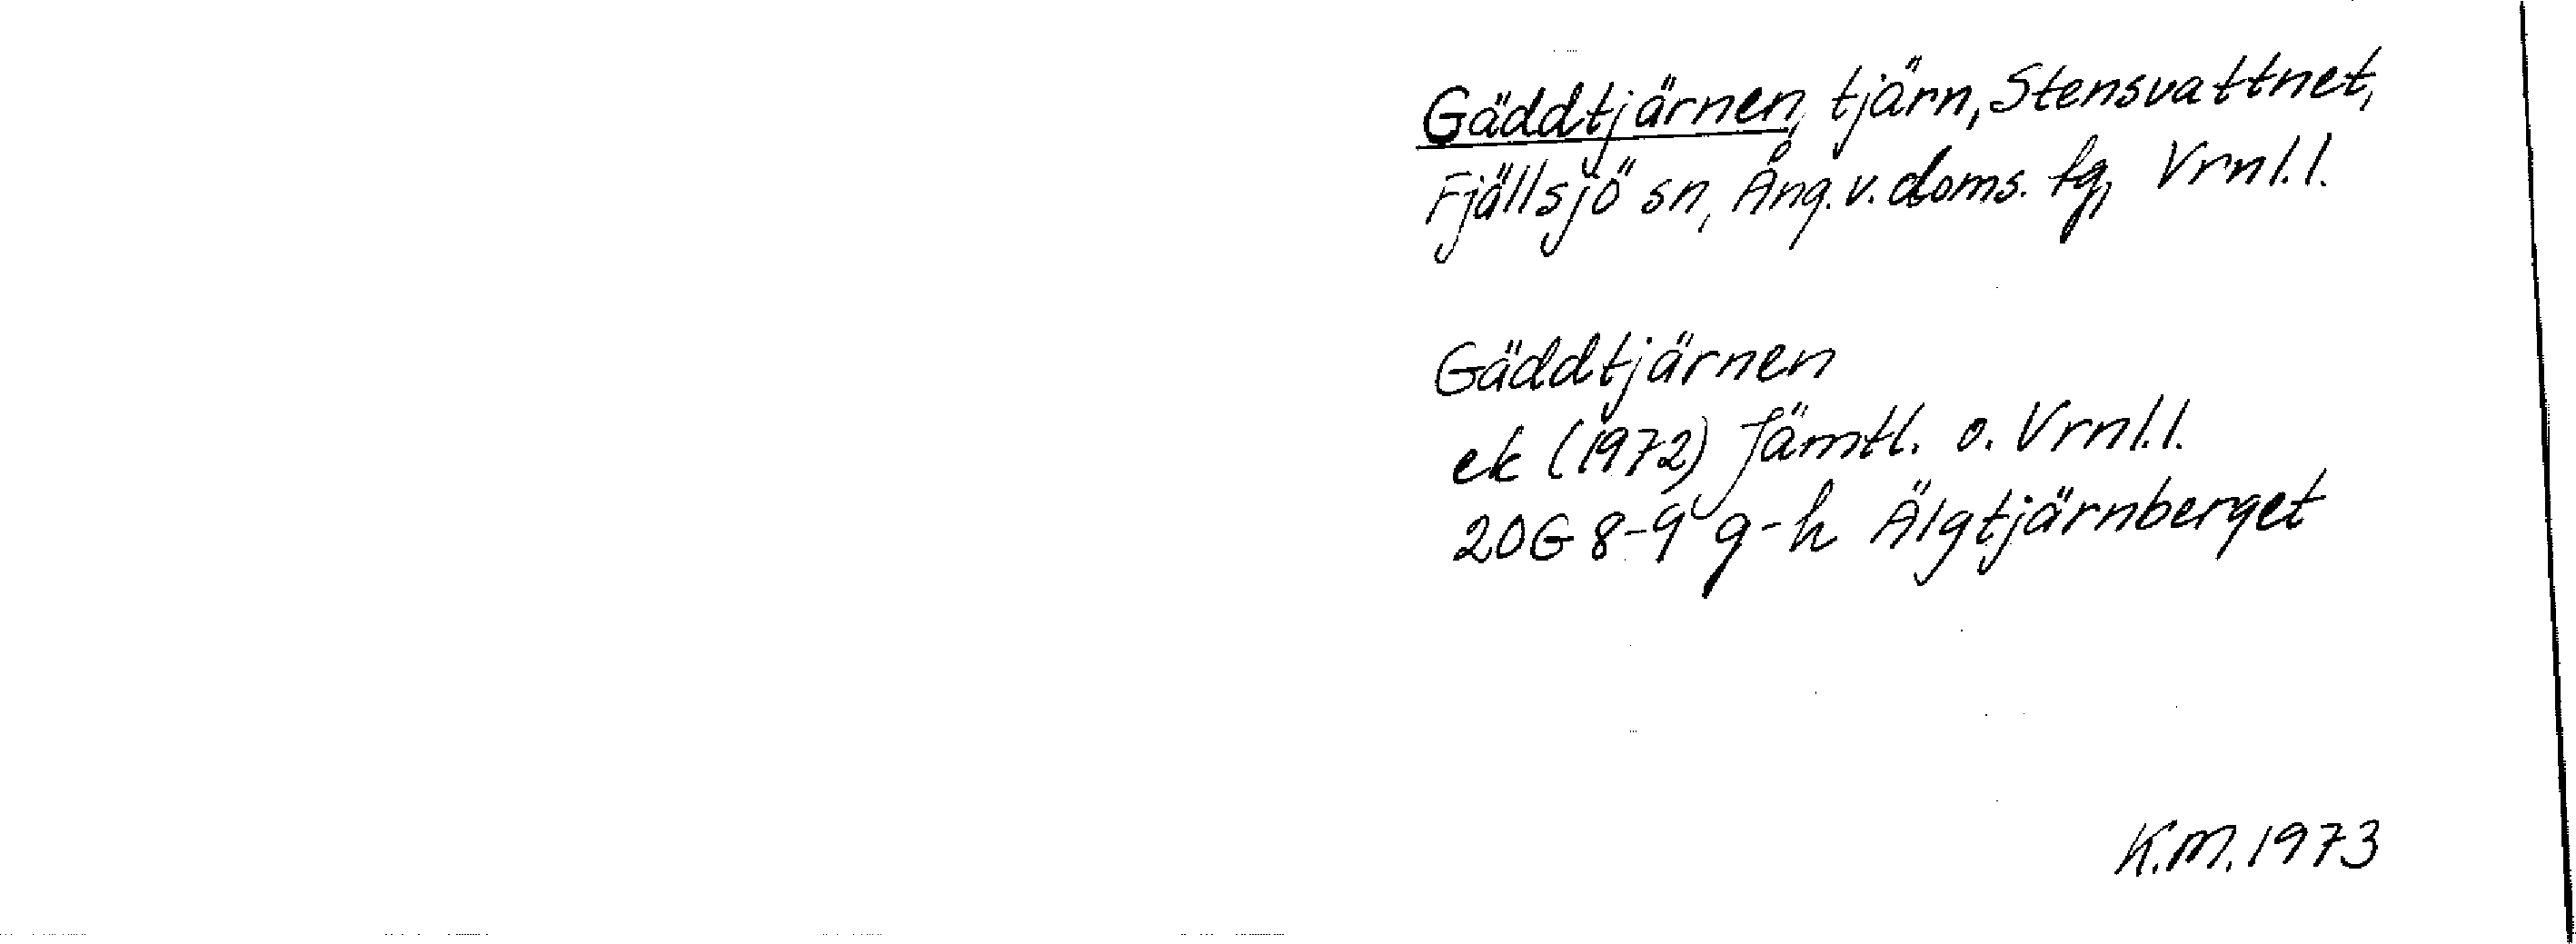 Gäddtjärnen, tjärn, Stensvattnet,
Fjällsjö sn, Ång. v. doms. tg, Vrnl.l.
Gäddtjärnen
ek (1972) Jämtl. o. Vrnl.l.
20G 8-9 g-h Älgtjärnberget
K.M. 1973